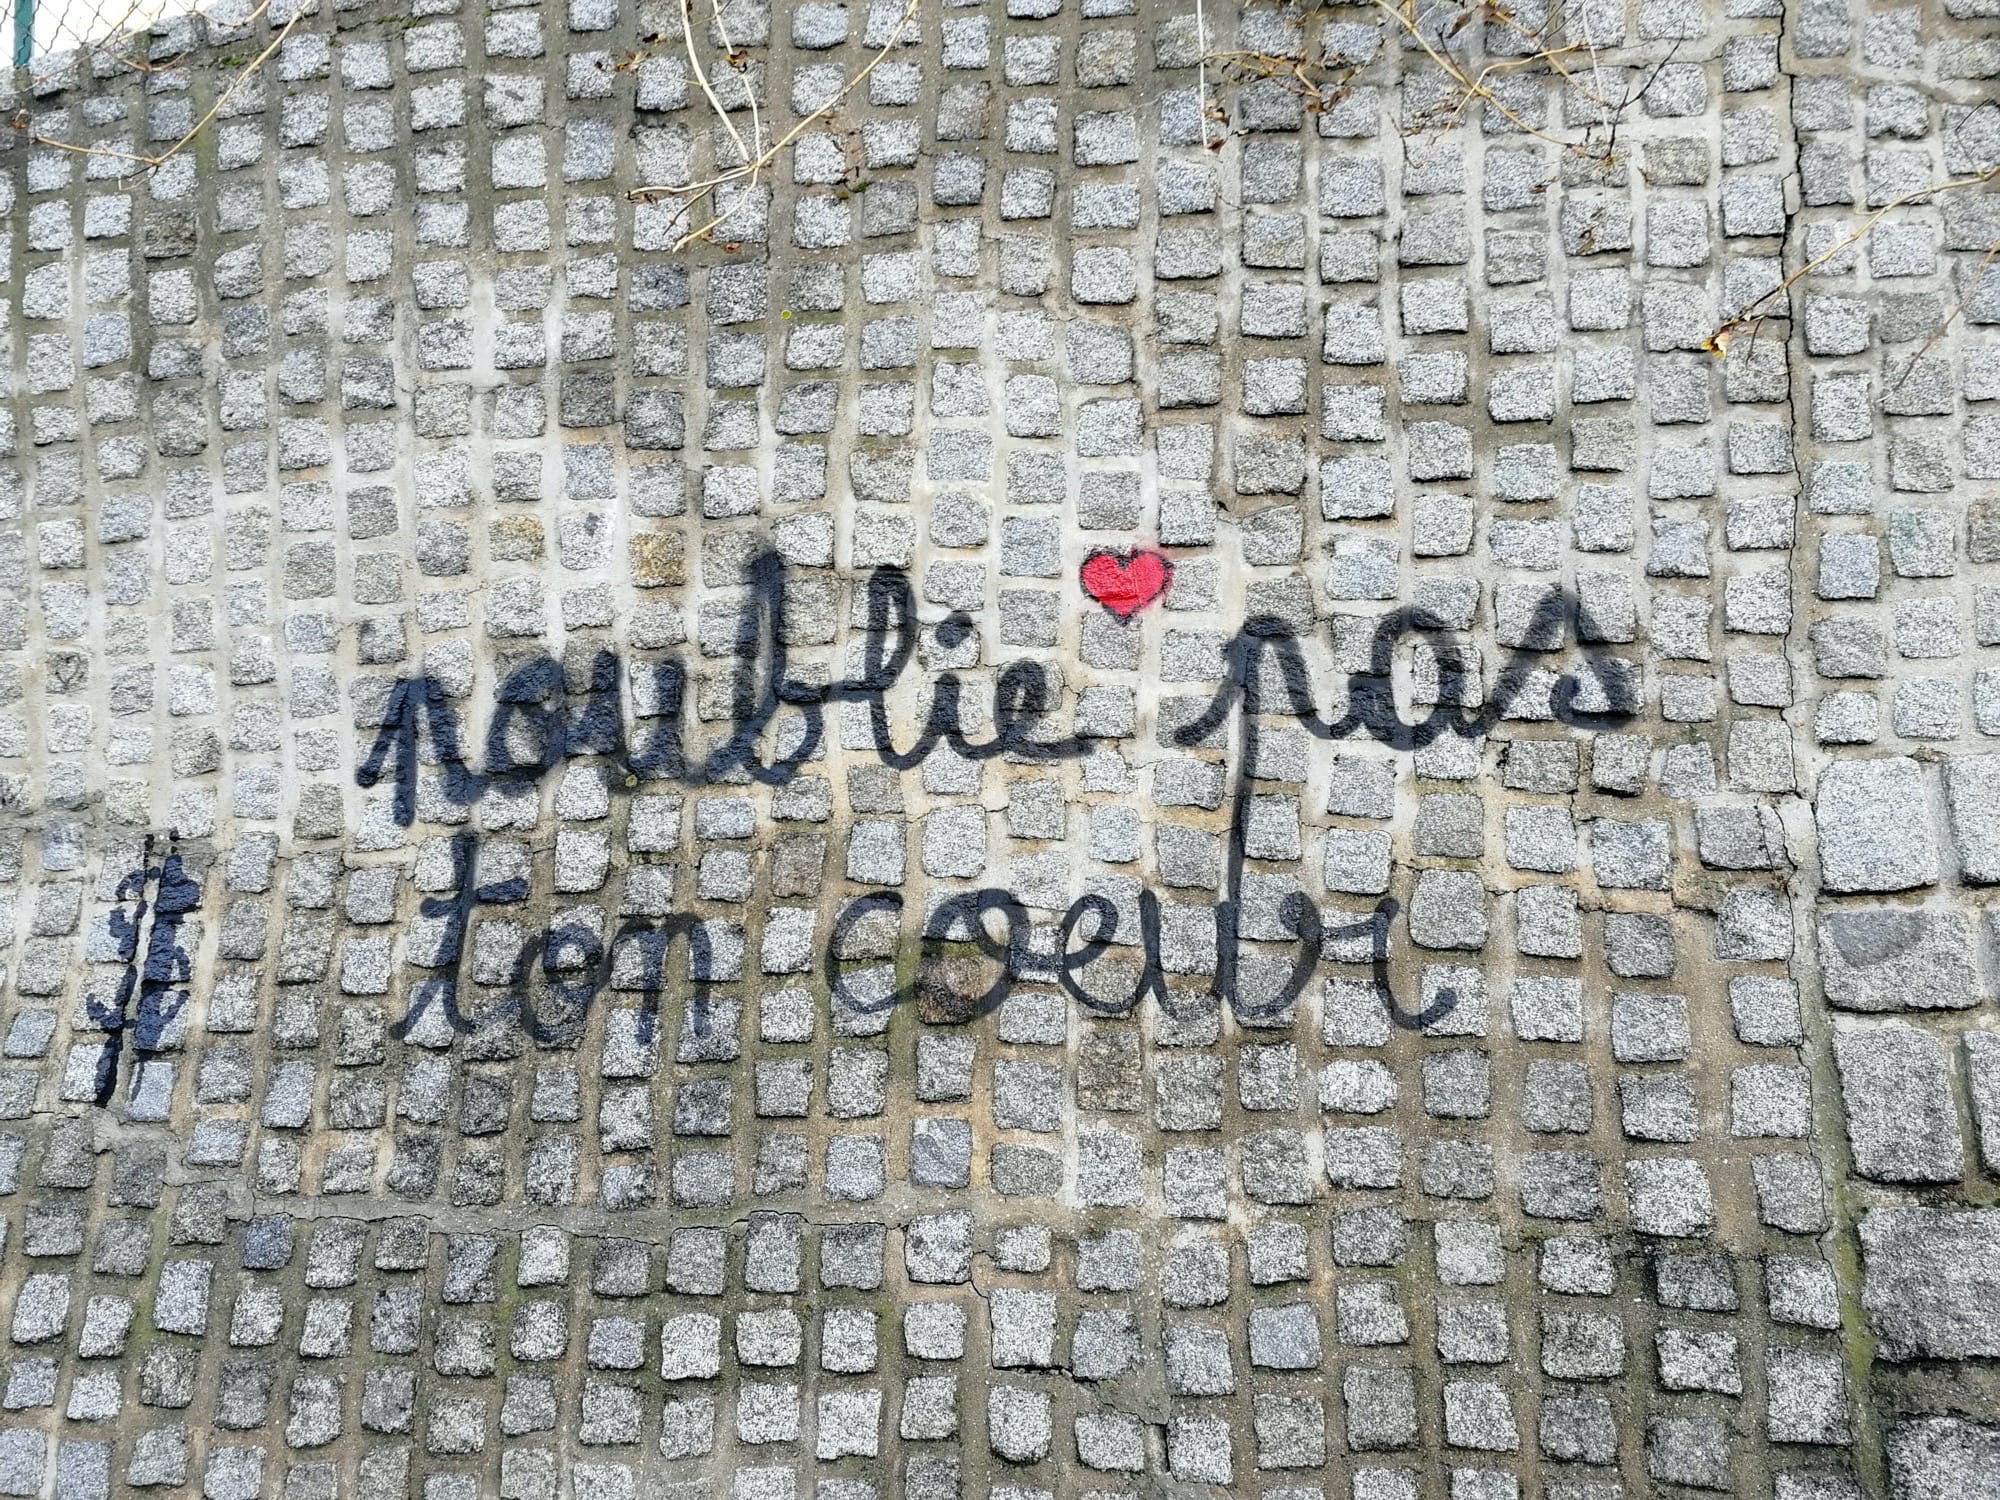 noublie pas
ton coeur